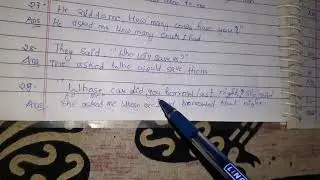 27- He said to me, How many cows have you?"
Ans He asked me How many cows I had
28- They said "Who will save us?"
Ans The asked who would save them
29- "Whose car did you borrow last night?" She said
Ans She asked me whose borrowed that night